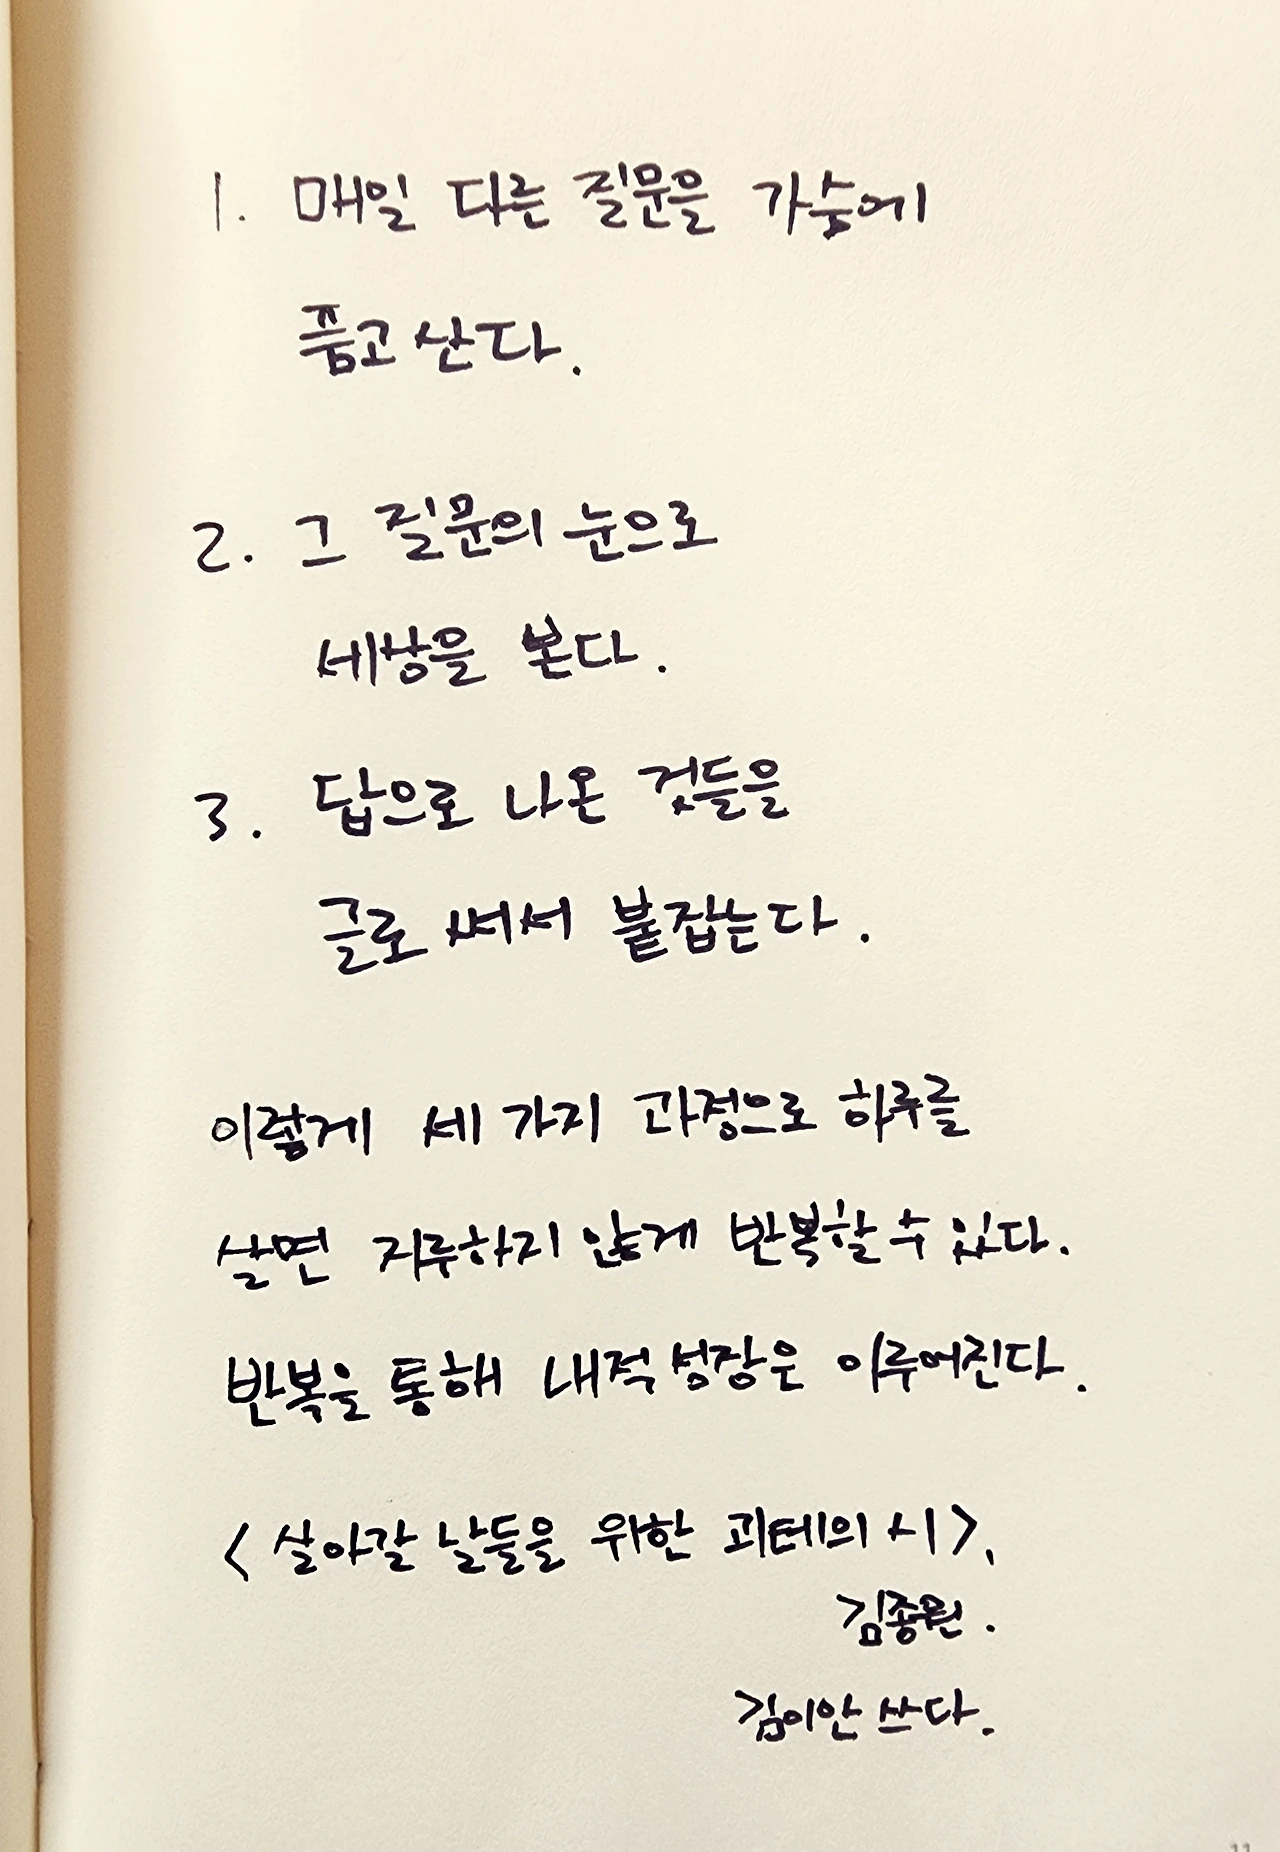 1. 매일 다른 질문을 가슴에
품고 산다.
2. 그 질문의 눈으로
세상을 본다.
3. 답으로 나온 것들을
글로 써서 붙잡는다.
이렇게 세 가지 과정으로 하루를
살면 지루하지 않게 반복할 수 있다.
반복을 통해 내적 성장은 이루어진다.
<살아갈 날들을 위한 괴테의 시>,
김종원.
김이안 쓰다.